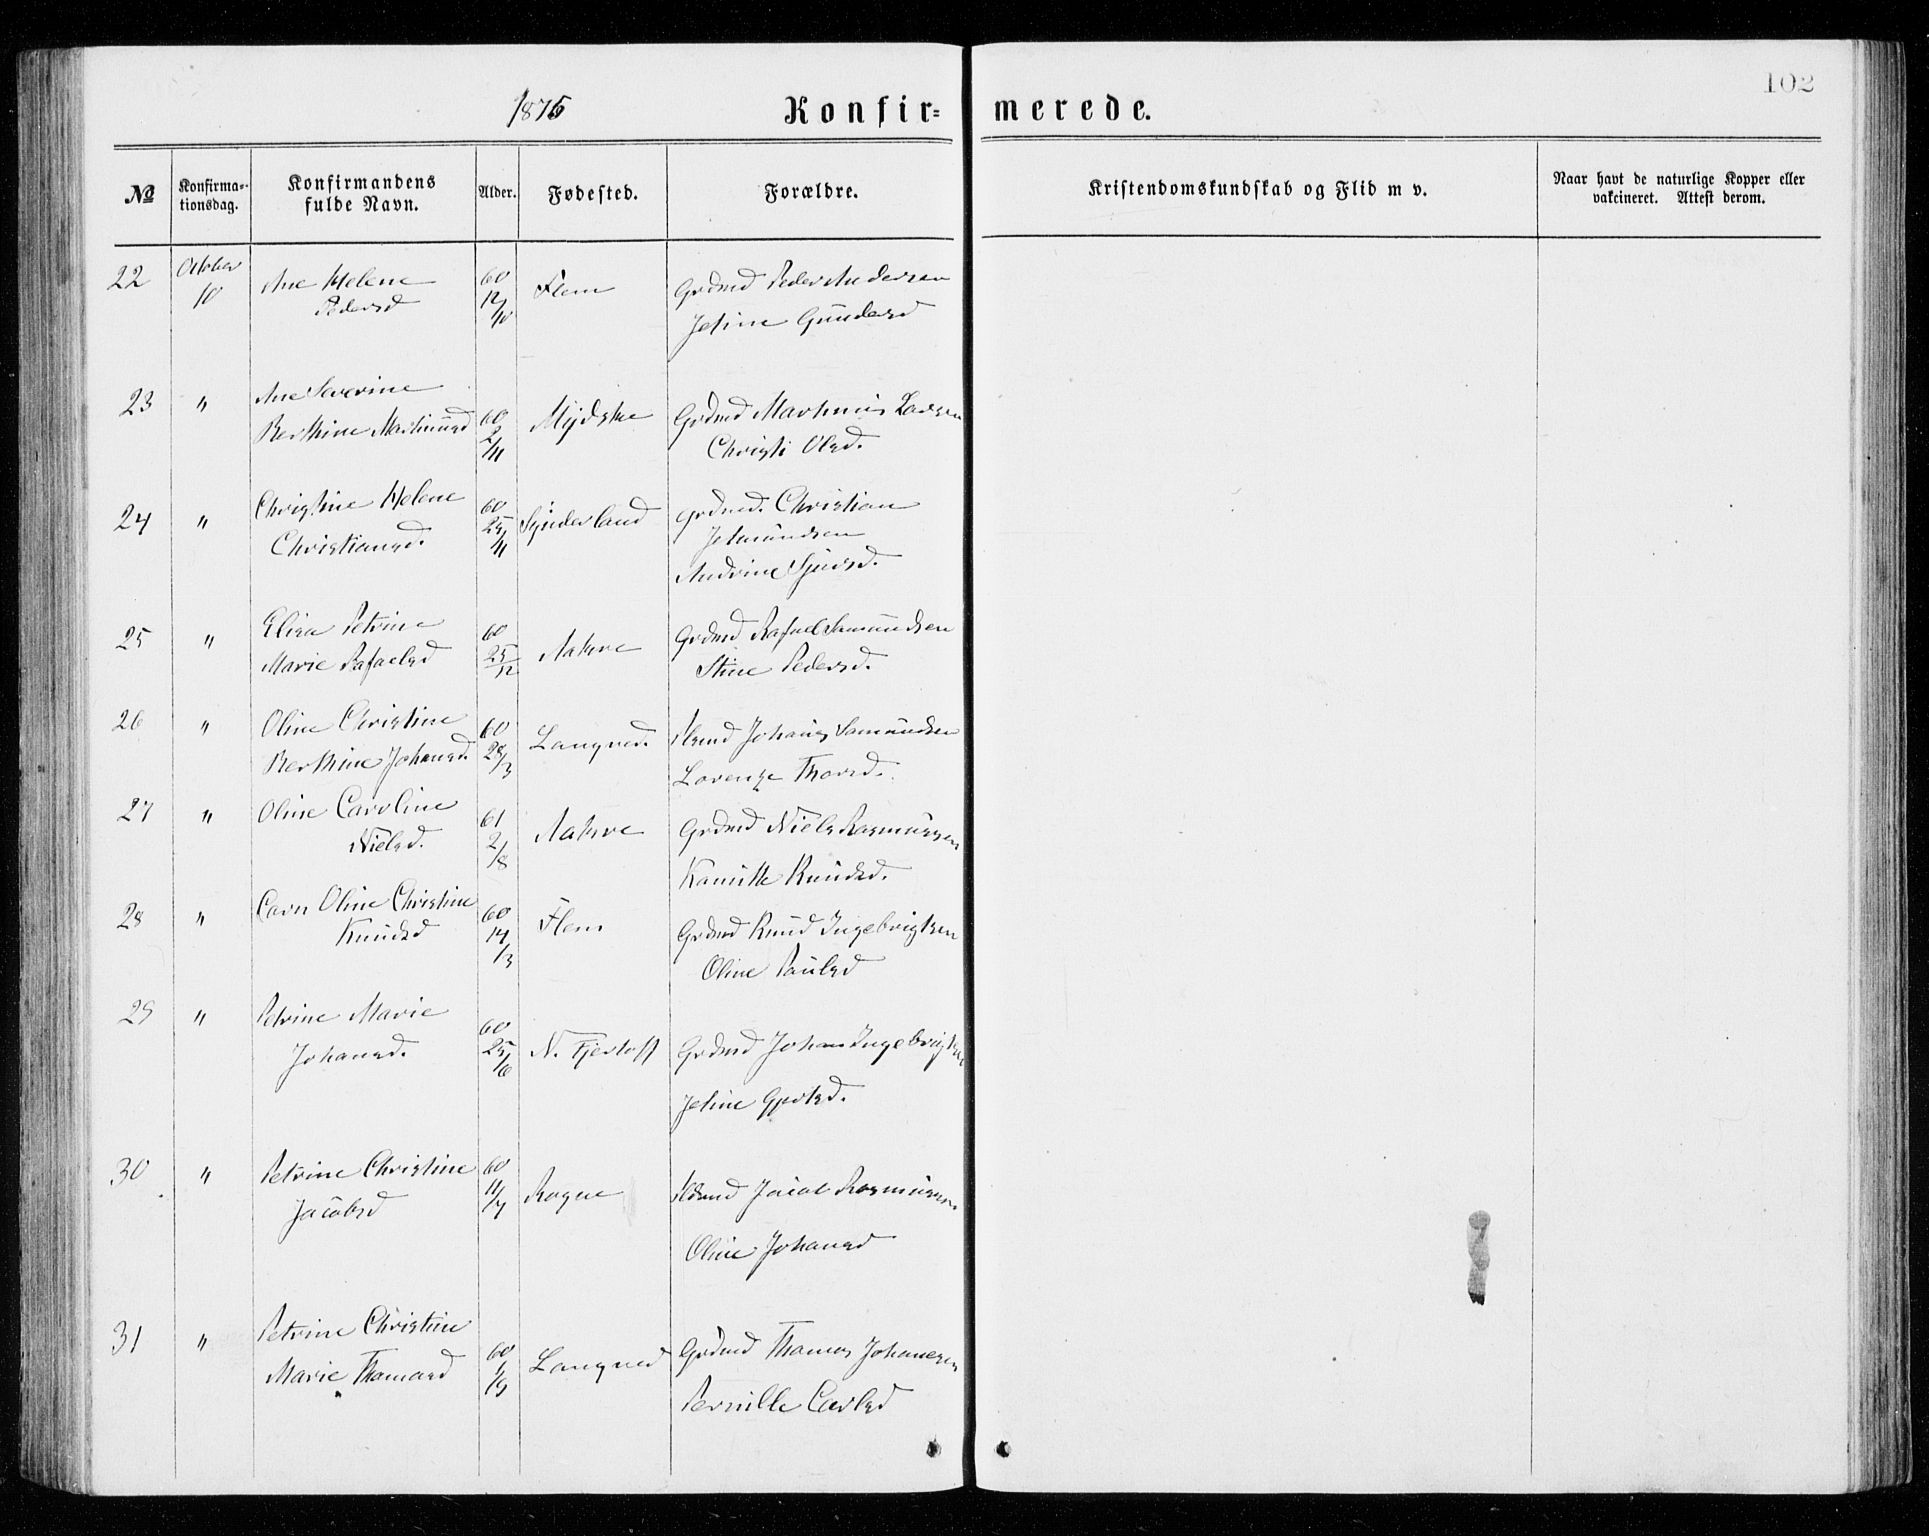 102
1875 Konfir= merede.
№ Konfirma=tionsdag. Konfirmandens fulde Navn. Alder. Fødested. Forældre. Kristendomskundskab og Flid m v. Naar havt de naturlige Kopper eller vakcineret. Attest derom.
22 Oktober 10 Ane Helene 60 12/10 Flem Grdmd Peder Andersen
Pedersd Jetine Gunders d
23 " Ane Severine
Berthine Martinusd 60 2/11 Mydske Grdmd Martinus Larsen
Christi Olsd.
24 " Christine Helene 60 25/11 Synderland Grdmd. Christian
Christiansd. Jetmundsen
Andrine Sjursd.
25 " Elisa Petrine 60 25/12 Aakre Grdmd Rafael Samundsen
Marie Rafaelsd Stine Pedersd.
26 " Oline Christine 60 28/3 Langned. Johanes Samundsen
Berthine Johansd. Lorenze Thorsd.
27 " Oline Caroline 61 2/8 Aakre Grdmd Niels Rasmussen
Nielsd. Knudsd.
28 " Caren Oline Christine 60 14/3 Flem Grdmd Knud Ingebrigtsen
Knudsd Oline Paulsd
29 " Petrine Marie 60 25/6 N. Fjertoft Grdmd Johan Ingebrigtsen
Johansd. Jetine
30 " Petrine Christine 60 11/7 Rogne Jacob Rasmussen
Jacobsd Oline Johansd
31 " Petrine Christine
Marie Thomasd 60 1/9 Langned Grdmd Thomas Johanesen
Pernille Carlsd